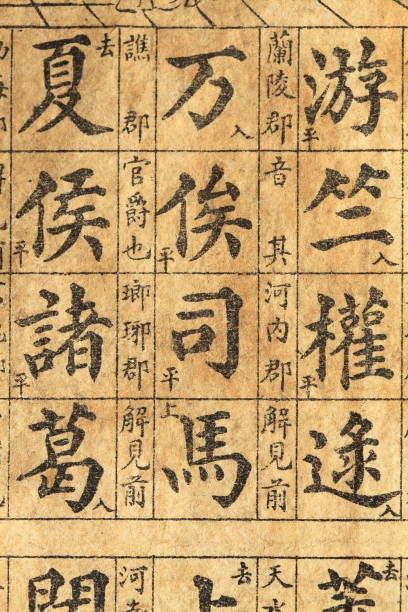 游平竺入權平逯入
去
蘭陵郡 音其 河內郡 解見前 天水
万入俟平司平馬上
上去
譙郡 官爵也 瑯琊郡 解見前 河
夏去侯平諸平葛入